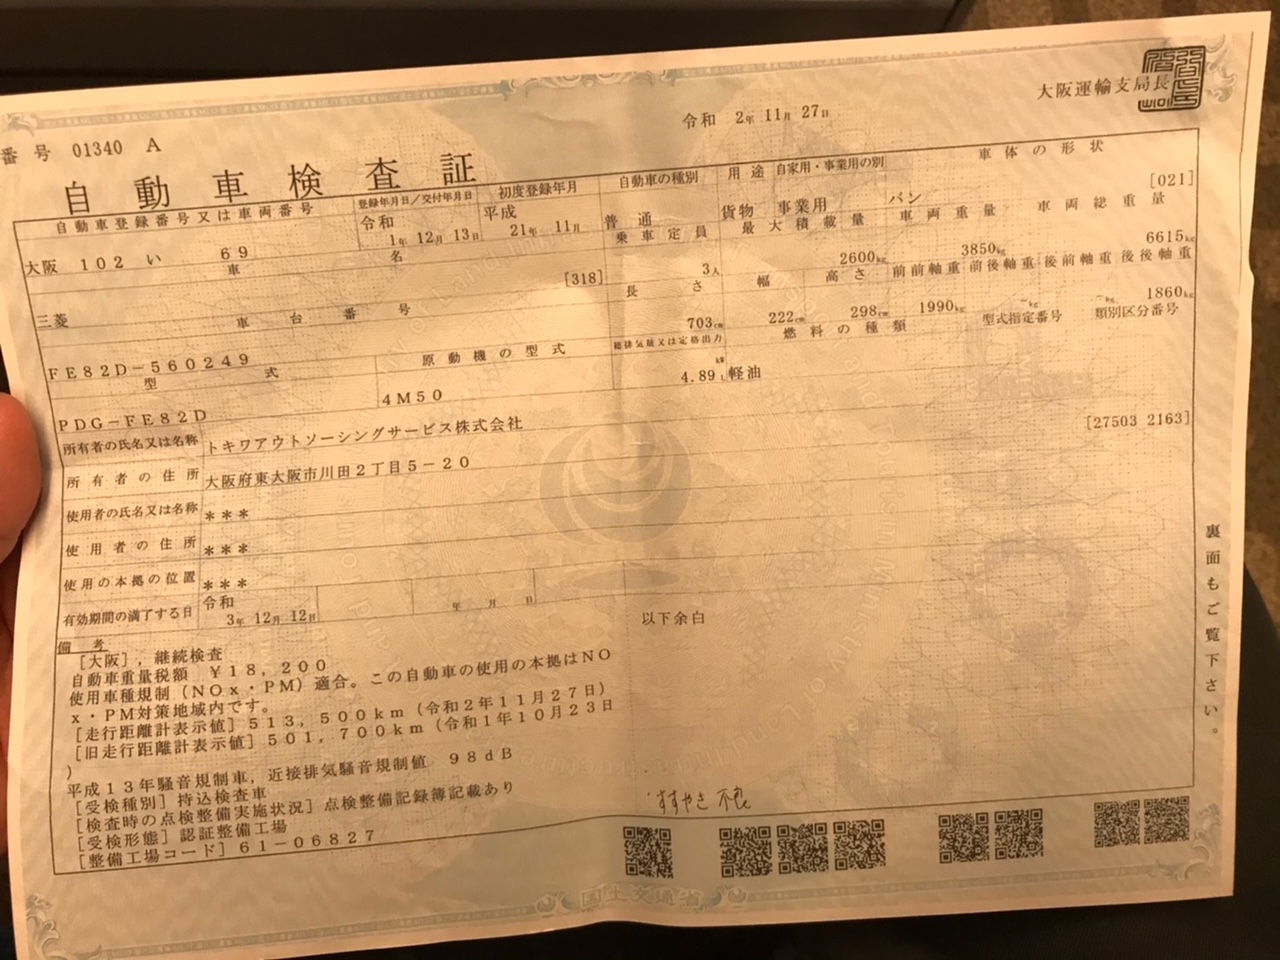 大阪運輸支局長
令和 2年 11月 27日
番号 01340 A
自動車検査証
自動車登録番号又は車両番号 登録年月日/交付年月日 初度登録年月 自動車の種別 用途 自家用・事業用の別 車体の形状
大阪 102 い 69 令和 1年 12月 13日 平成 21年 11月 普通 貨物 事業用 バン [021]
車名 乗車定員 最大積載量 車両重量 車両総重量
三菱 [318] 3人 2600kg 3850kg 6615kg
車台番号 長さ 幅 高さ 前前軸重 前後軸重 後前軸重 後後軸重
FE82D-560249 703cm 222cm 298cm 1990kg -kg -kg 1860kg
型式 原動機の型式 総排気量又は定格出力 燃料の種類 型式指定番号 類別区分番号
PDG-FE82D 4M50 kW 4.89L 軽油
所有者の氏名又は名称 トキワアウトソーシングサービス株式会社
所有者の住所 大阪府東大阪市川田2丁目5-20 [27503 2163]
使用者の氏名又は名称 ***
使用者の住所 ***
使用の本拠の位置 ***
有効期間の満了する日 令和 3年 12月 12日 年 月 日
備考
以下余白
[大阪],継続検査
自動車重量税額 ¥18,200
使用車種規制(NOx・PM)適合。この自動車の使用の本拠はNO
x・PM対策地域内です。
[走行距離計表示値]513,500km(令和2年11月27日)
[旧走行距離計表示値]501,700km(令和1年10月23日
)
平成13年騒音規制車,近接排気騒音規制値 98dB
[受検種別]持込検査車
[検査時の点検整備実施状況]点検整備記録簿記載あり
[受検形態]認証整備工場
[整備工場コード]61-06827
裏面もご覧下さい。
国土交通省